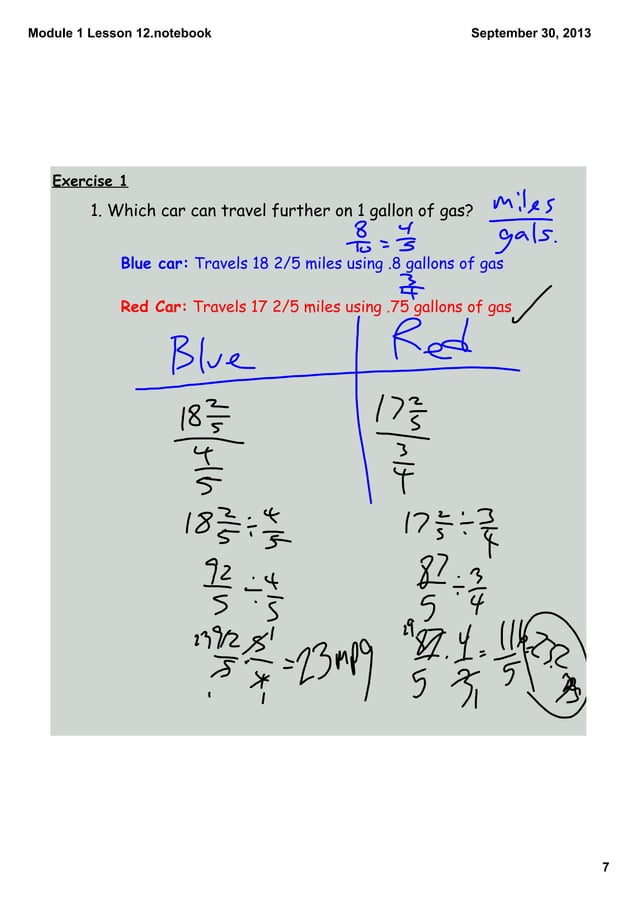 Module 1 Lesson 12.notebook
September 30, 2013
Exercise 1
1. Which car can travel further on 1 gallon of gas?
miles
gals.
8/10 = 4/5
Blue car: Travels 18 2/5 miles using .8 gallons of gas
3/4
Red Car: Travels 17 2/5 miles using .75 gallons of gas ✓
Blue Red
18 2/5 17 2/5
4/5 3/4
18 2/5 ÷ 4/5 17 2/5 ÷ 3/4
92/5 ÷ 4/5 87/5 ÷ 3/4
23 92/5 · 5/4 = 23 mpg 29 87/5 · 4/3 = 116/5 = 23.2
7